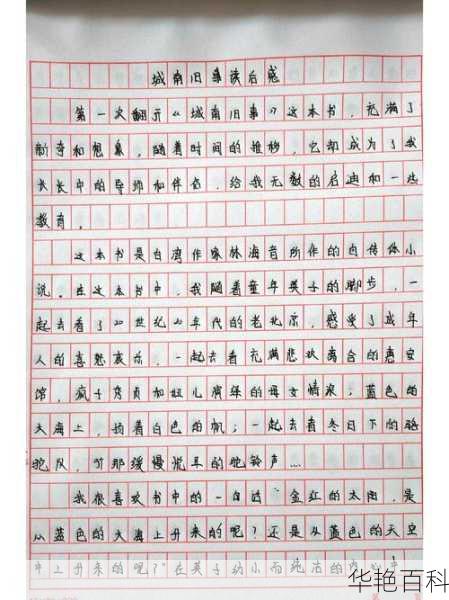 城南旧事读后感
第一次翻开《城南旧事》这本书，充满了
新奇和想象，随着时间的推移，它却成为了我
成长中的导师和伴侣，给我无数的启迪和一些
教育。
这本书是台湾作家林海音所作的自传体小
说。在这本书中，我随着童年英子的脚步，一
起去看了20世纪20年代的老北京，感受了成年
人的喜怒哀乐，一起去看充满悲欢离合的惠安
馆，疯子秀贞和妞儿演绎的母女情深；蓝色的
大海上，扬着白色的帆；一起去看冬日下的骆
驼队，听那缓慢悦耳的驼铃声…
我很喜欢书中的一句话“金红的太阳，是
从蓝色的大海上升来的呢？还是从蓝色的天空
中上升来的呢？”在英子幼小而纯洁的内心中
华艳百科